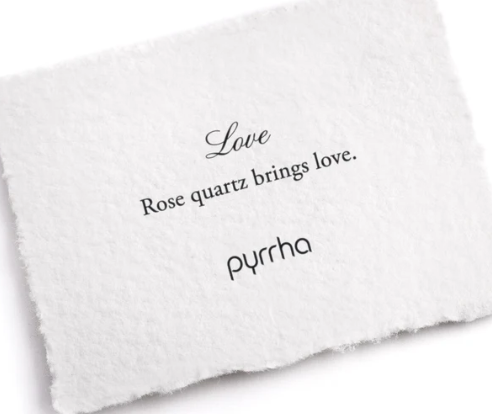 Love
Rose quartz brings love.
pyrrha